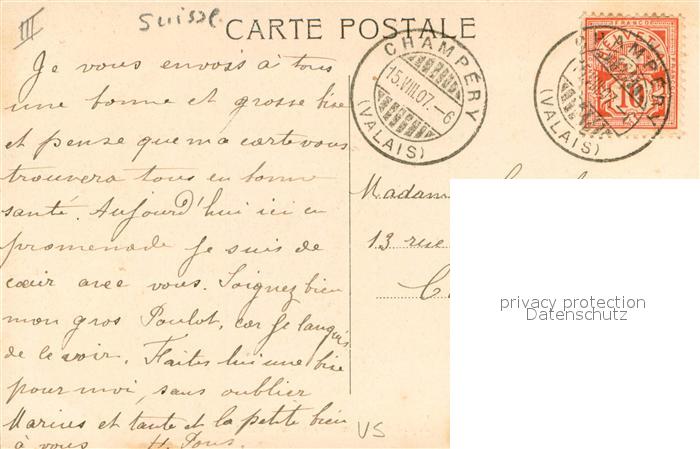 III
Suisse
CARTE POSTALE
Je vous envois à tous
une bonne et grosse bise
et pense que ma carte vous
trouvera tous en bonne
santé. Aujourd'hui ici en
promenade je suis de
cœur avec vous. Soignez bien
mon gros Poulot, car je languis
de le voir. Faites lui une bise
pour moi, sans oublier
Marius et tante et la petite bien
à vous H. Pons.
VS
CHAMPÉRY
15.VIII.07.–6
(VALAIS)
CHAMPÉRY
(VALAIS)
FRANCO
10
Madam
13 rue
C
privacy protection
Datenschutz